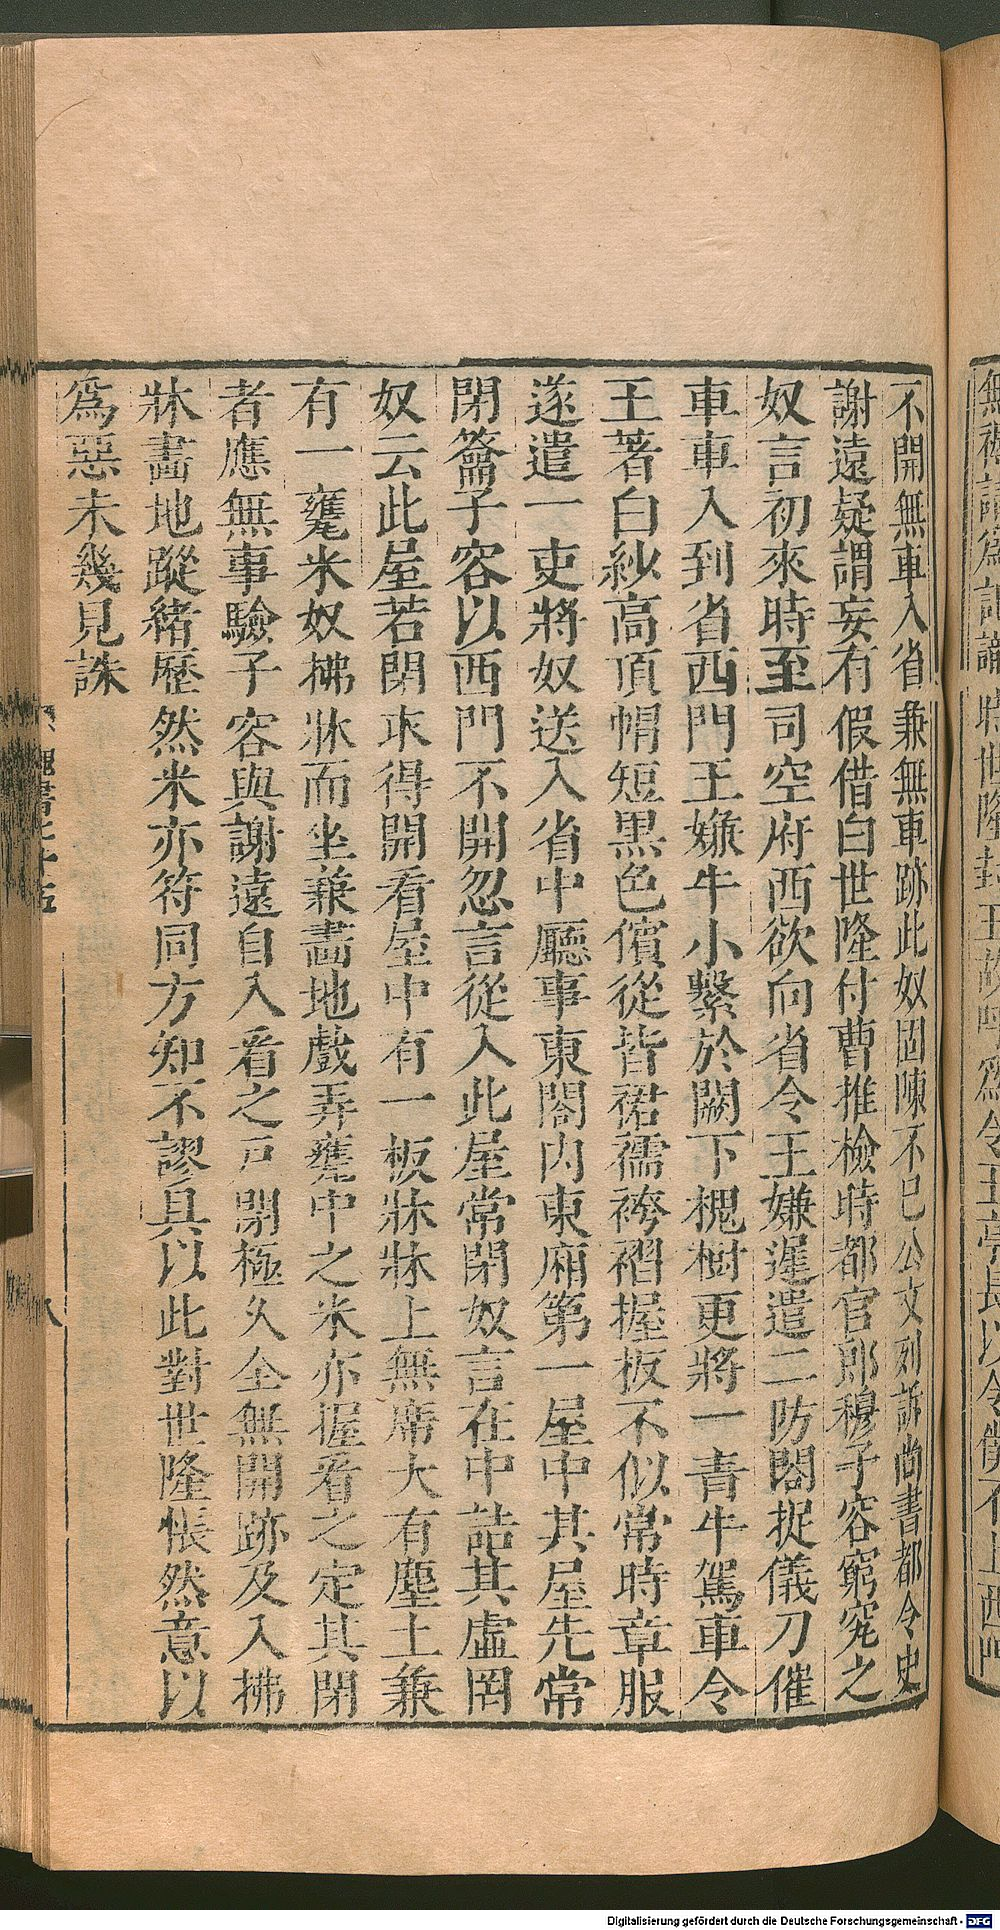 不開無車入省兼無車跡此奴固陳不已公文列訴尚書都令史
謝遠疑謂妄有假借白世隆付曹推檢時都官郎穆子容窮究之
奴言初來時至司空府西欲向省令王嫌遲遣二防閤捉儀刀催
車車入到省西門王嫌牛小繫於闕下槐樹更將一青牛駕車令
王著白紗高頂帽短黑色儐從皆裙襦袴褶握板不似常時章服
遂遣一吏將奴送入省中廳事東閤內東廂第一屋中其屋先常
閉籥子容以西門不開忽言從入此屋常閉奴言在中詰其虛罔
奴云此屋若閉求得開看屋中有一板牀牀上無席大有塵土兼
有一甕米奴拂牀而坐兼畫地戲弄甕中之米亦握看之定其閉
者應無事驗子容與謝遠自入看之戶閉極久全無開跡及入拂
牀畫地蹤緒歷然米亦符同方知不謬具以此對世隆悵然意以
爲惡未幾見誅
魏書七十五
八
Digitalisierung gefördert durch die Deutsche Forschungsgemeinschaft - DFG